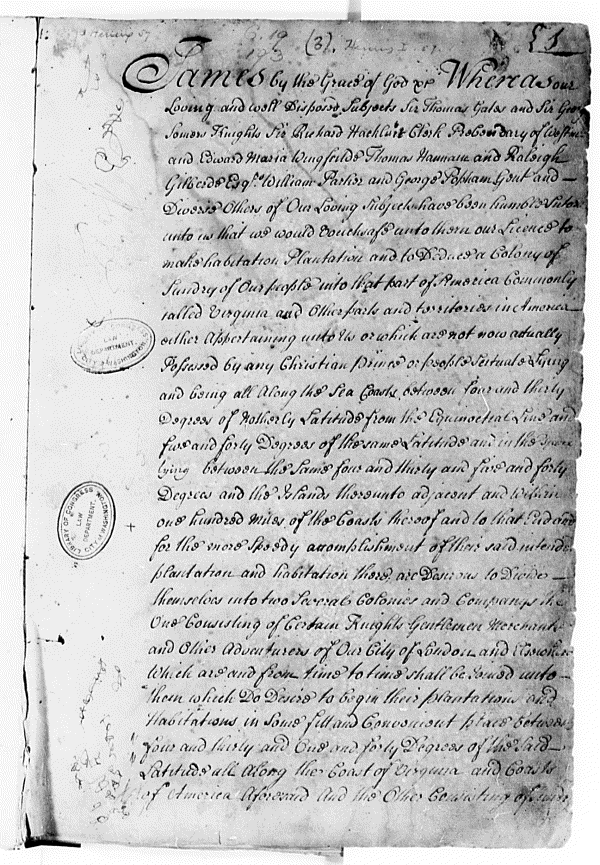 (3)
§ 1
James by the Grace of God &c Whereas our
Loving and well Disposed Subjects Sir Thomas Gates and Sir Geo
Somers Knights Sir Richard Hackluit Clerk Prebendary of Westm
and Edward Maria Wingfeilde Thomas Hannam and Raleigh
Gilberde Esqrs. William Parker and George Popham Gent and
Diverse Others of Our Loving Subjects have been humble Sutors
unto us that we would Vouchsafe unto them our Licence to
make habitation Plantation and to Deduce a Colony of
Sundry of Our people into that part of America Commonly
called Virginia and Other parts and territories in America
either Appertaining unto Us or which are not now actually
Possessed by any Christian Prince or people Scituate Lying
and being all Along the Sea Coasts between four and thirty
Degrees of Notherly Latitude from the Equinoctial Line and
five and forty Degrees of the same Latitude and in the
lying between the Same four and thirty and five and forty
Degrees and the Islands thereunto adjacent and within
one hundred Miles of the Coasts thereof and to that End and
for the more Speedy accomplishment of their said intended
plantation and habitation there are Desirous to Divide
themselves into two Several Colonies and Companys the
One Consisting of Certain Knights Gentlemen Merchants
and Other Adventurers of Our City of London and Elsewhere
Which are and from time to time shall be Joined unto
them which Do Desire to begin their plantations and
Habitations in Some fitt and Convenient place between
four and thirty and One and forty Degrees of the Said
Latitude all Along the Coast of Virginia and Coasts
of America Aforesaid And the Other Consisting of
LAW
DEPARTMENT.
LIBRARY OF CONGRESS
LAW
DEPARTMENT.
CITY OF WASHINGTON